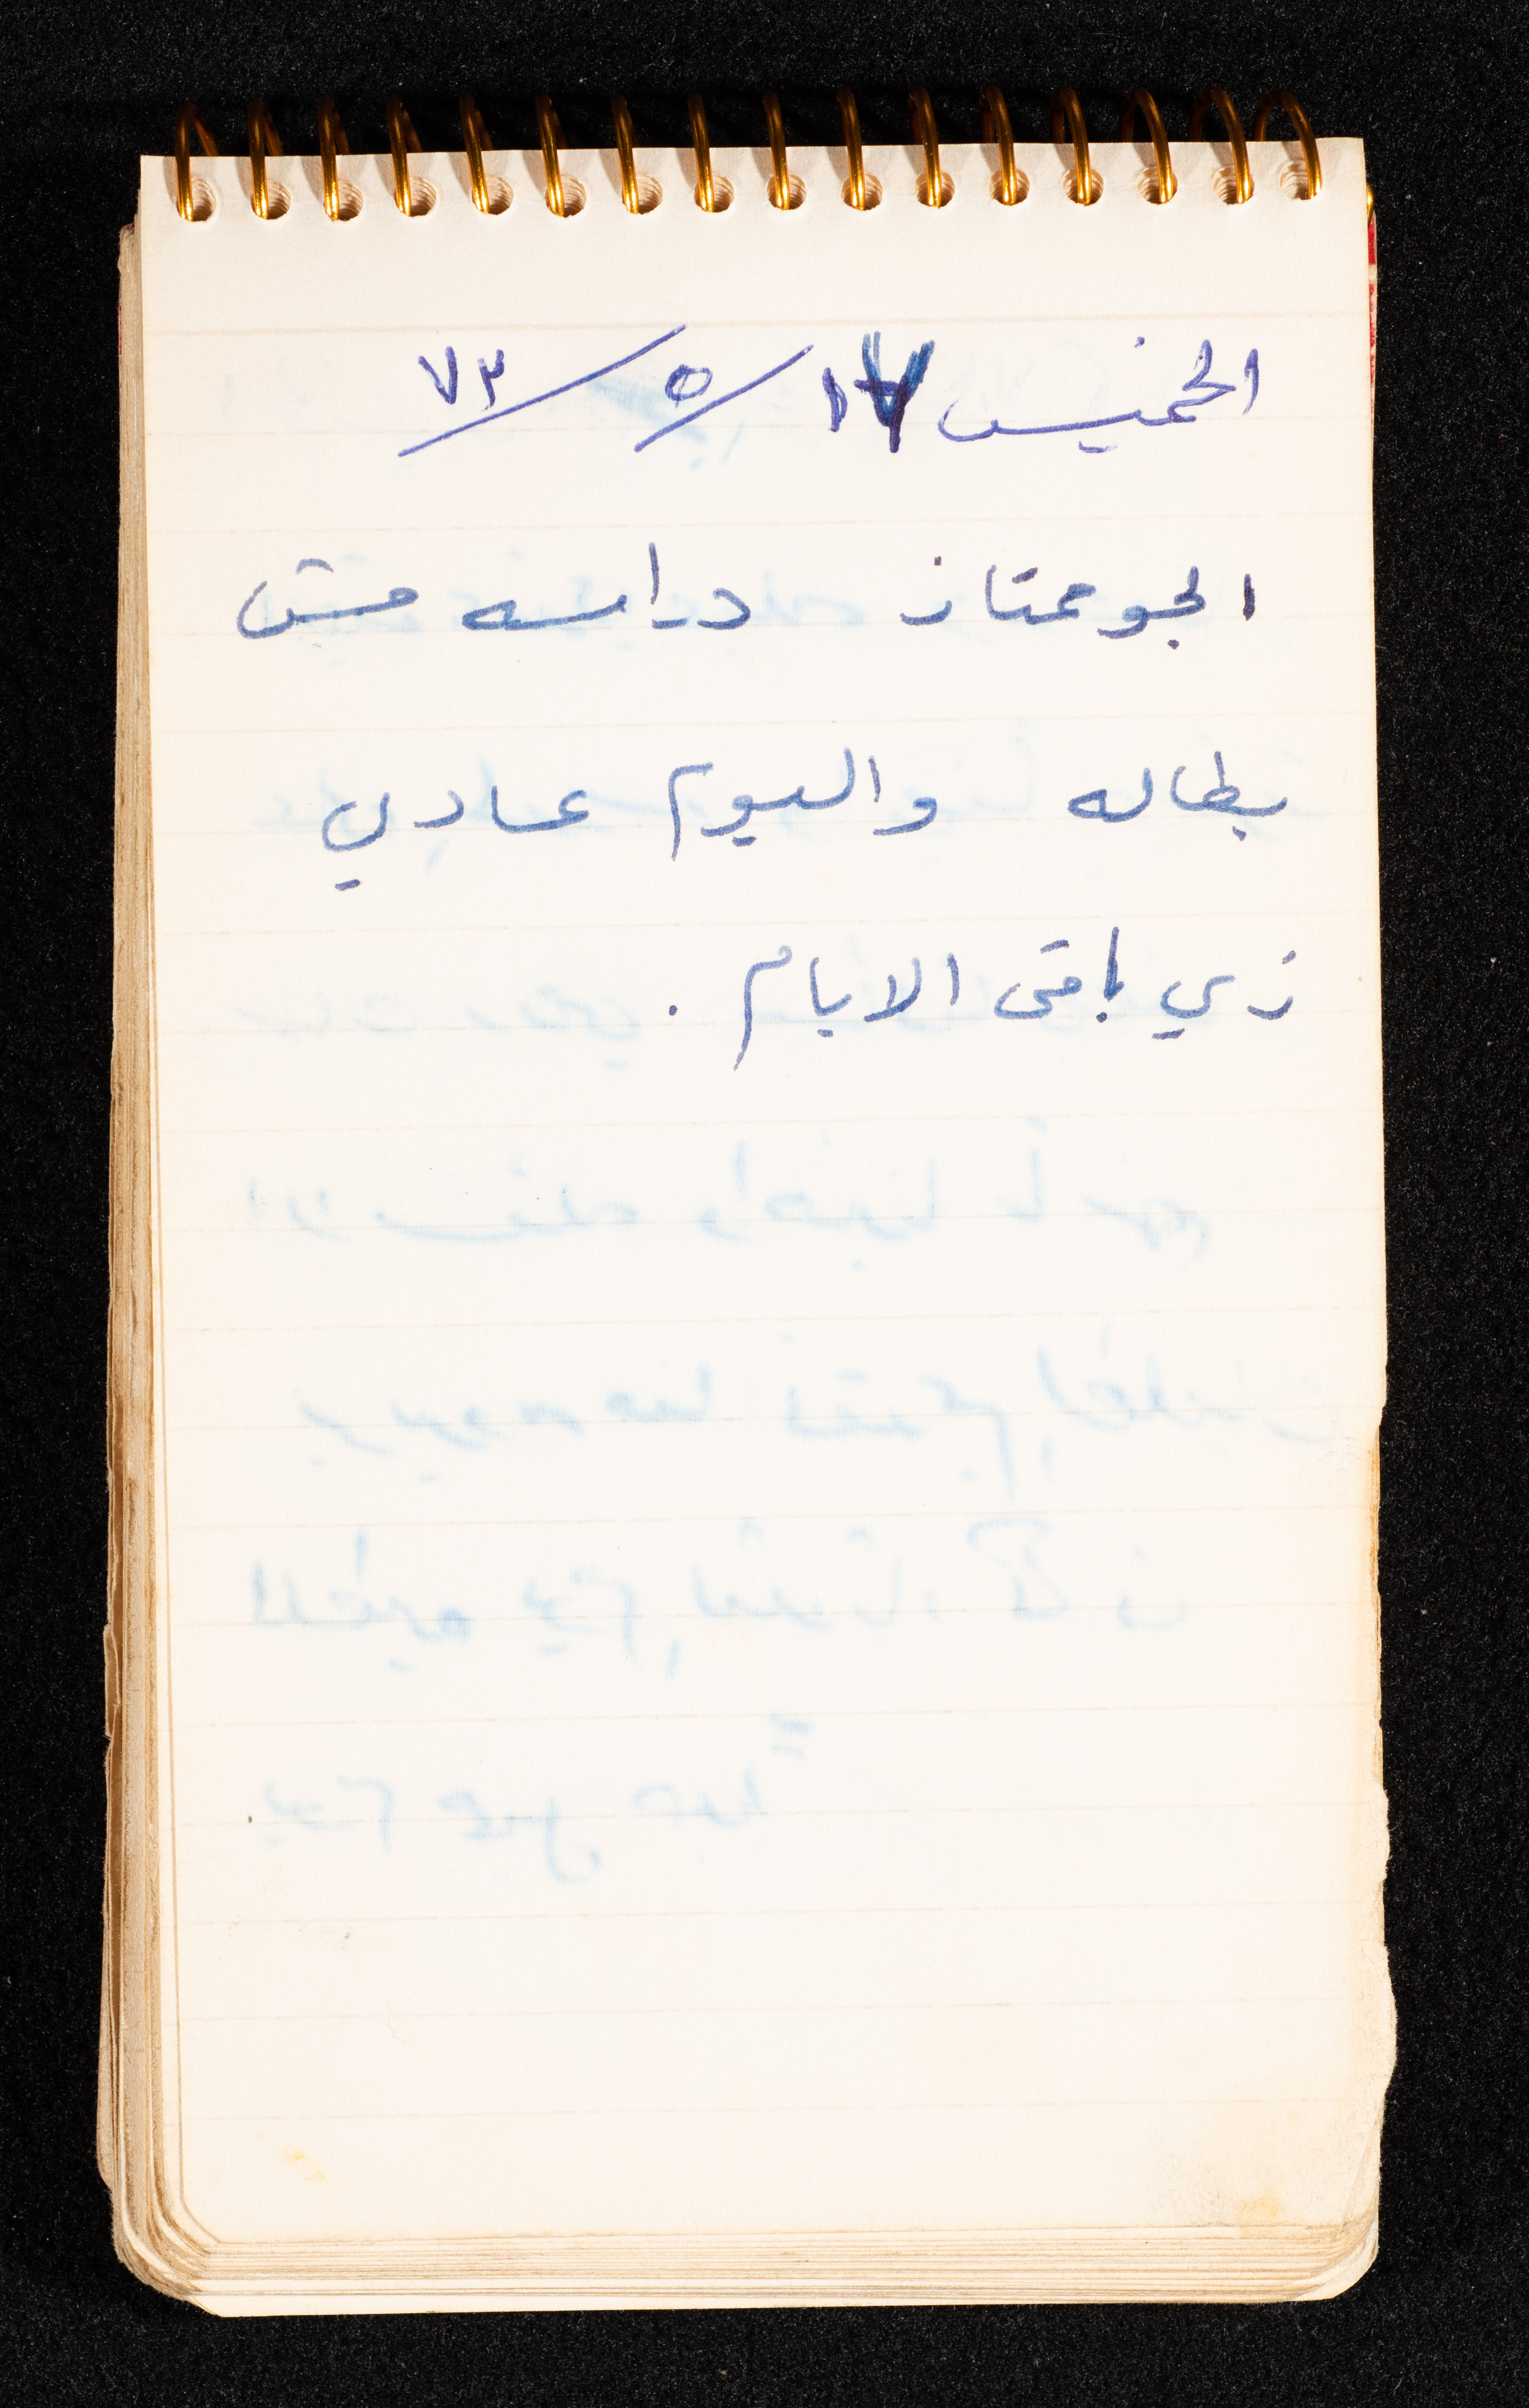 الخميس ١٧/٥/٧٣
الجو ممتاز دراسه مش
بطاله واليوم عادي
زي باقى الايام .